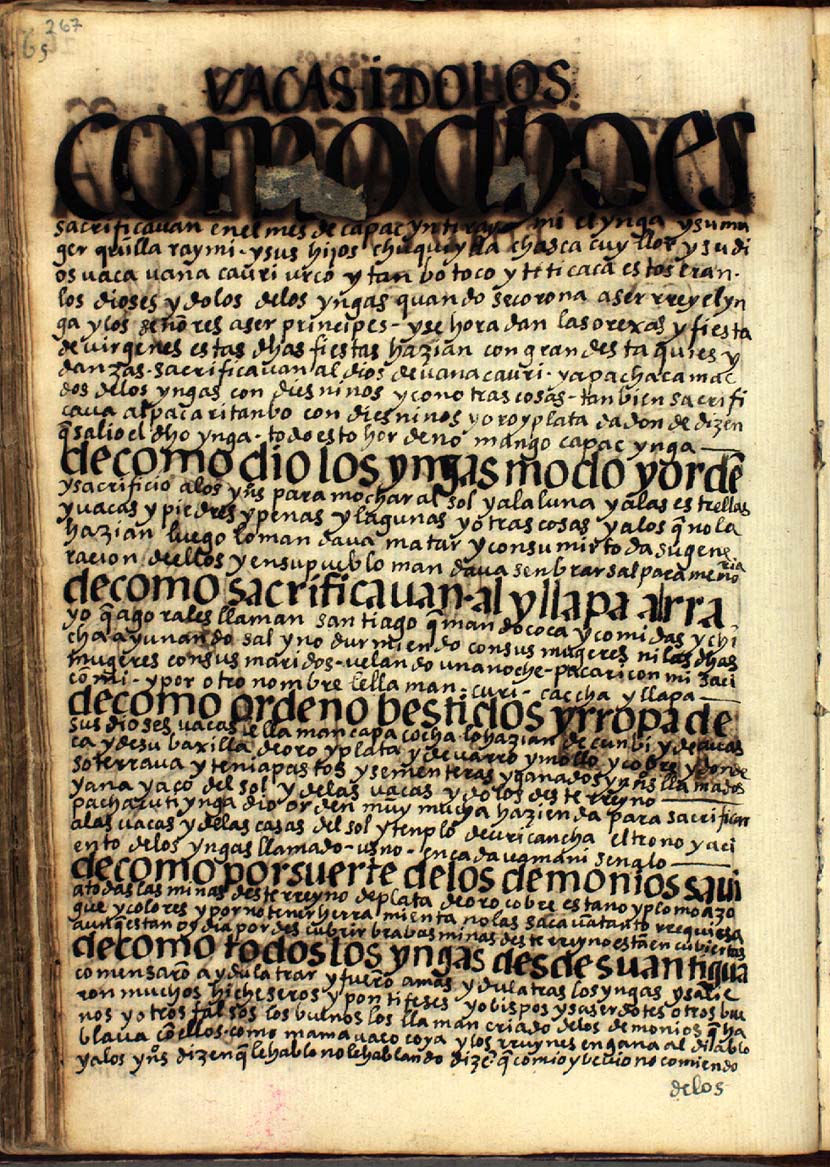 267
65
VACAS IDOLOS
COMO dhoes
sacrificauan en el mes de capac ynti raymi el ynga y su mu
ger quilla raymi - y sus hijos chuqui ylla chasca cuyllor y su di
os uaca uana cauri urco y tanbo toco y titi caca estos eran -
los dioses ydolos de los yngas quando se corona a ser rrey el yn
ga y los señores a ser principes - y se horadan las orexas y fiesta
de uirgenes estas dhas fiestas hazian con grandes taquies y
danzas - sacrificauan al dios de uana cauri - y a pachacamac
dos de los yngas con dies ninos y con otras cosas - tanbien sacrifi
caua al pacaritanbo con dies ninos y oro y plata da donde dizen
q̃ salio el dho ynga - todo esto hordeno mango capac ynga
de como dio los yngas modo y ordē
y sacrificio a los yns̃ para mochar al sol y a la luna y a las estrellas
y uacas y piedres y penas y lagunas y otras cosas y a los q̃ no la
hazian luego lo mandaua matar y consumir toda su gene
racion dellos y en su pueblo mandaua senbrar sal para meno
ria
de como sacrificauan - al yllapa al rra
yo q̃ agorales llaman santiago q̃ mando coca y comidas y chi
cha ayunando sal y no durmiendo con sus mugeres ni las dhas
mugeres con sus maridos - uelando una noche - pacaricon mi zaci
con mi - y por otro nombre le llaman - curi - caccha yllapa
de como ordeno bestidos y rropa de
sus dioses uacas le llaman capa cocha - lo hazian de cunbi y de auas
ca y de su baxilla de oro y plata y de uarro y mollo y cobre y donde
soterraua y tenia pastos y sementeras y ganados y yns̃ llamados
yana yaco del sol y de las uacas ydolos deste rreyno
pachacuti ynga dio orden muy mucha hazienda para sacrificar
a las uacas y de las casas del sol y templo de curicancha el trono y aci
ento de los yngas llamado - usno - en cada uamani senalo
de como por suerte de los demonios saui
a todas las minas deste rreyno de plata de oro cobre estano y plomo azo
gue y colores y por no tener herramienta no las sacauan tanto rrequiesa
aunq̃ estan oy dia por descubrir brabas minas deste rreyno estã encubiertas
de como todos los yngas desde su antigua
comensarõ a ydulatrar y fuerõ amas ydulatras los yngas y salie
ron muchos hicheseros y pontifeses y obispos y saserdotes otros bue
nos y otros falsos los buenos los llaman criado de los demonios q̃ ha
blaua cõ ellos - como mama uaco coya y los rruynes engana al diablo
y a los yns̃ dizen q̃ le hablo no le hablando dizē q̃ comio y beuio no comiendo
de los